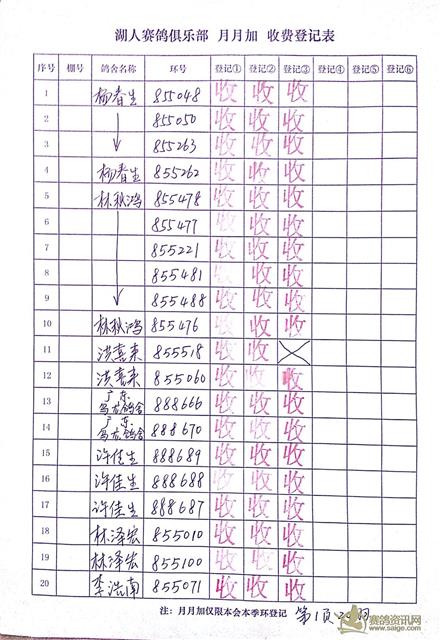 湖人赛鸽俱乐部 月月加 收费登记表
序号 棚号 鸽舍名称 环号 登记① 登记② 登记③ 登记④ 登记⑤ 登记⑥
1 杨春生 855048 收 收 收
2 855050 收 收 收
3 855263 收 收 收
4 杨春生 855262 收 收 收
5 林秋鸿 855478 收 收 收
6 855477 收 收 收
7 855221 收 收 收
8 855481 收 收 收
9 855488 收 收 收
10 林秋鸿 855476 收 收 收
11 洪喜来 855518 收 收
12 洪喜来 855060 收 收 收
13 广东 鸽舍 888666 收 收 收
14 广东 鸽舍 888670 收 收 收
15 许佳生 888689 收 收 收
16 许佳生 888688 收 收 收
17 许佳生 888687 收 收 收
18 林泽宏 855010 收 收 收
19 林泽宏 855100 收 收 收
20 李浩南 855071 收 收 收
注：月月加仅限本会本季环登记 第1页20羽
赛鸽资讯网
www.saige.com